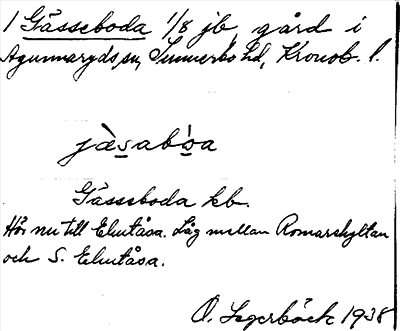 1 Gässeboda 1/8 jb, gård i
Agunnaryds sn, Sunnerbo hd, Kronob. l.
jæ̀sab'oa
Gässeboda kb.
Hör nu till Elmtåsa. Låg mellan Romarehyltan
och S. Elmtåsa.
O. Segerbäck 1938